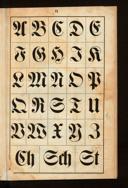 A B C D E
F G H I K
L M N O P
Q R S T U
V W X Y Z
Ch Sch St